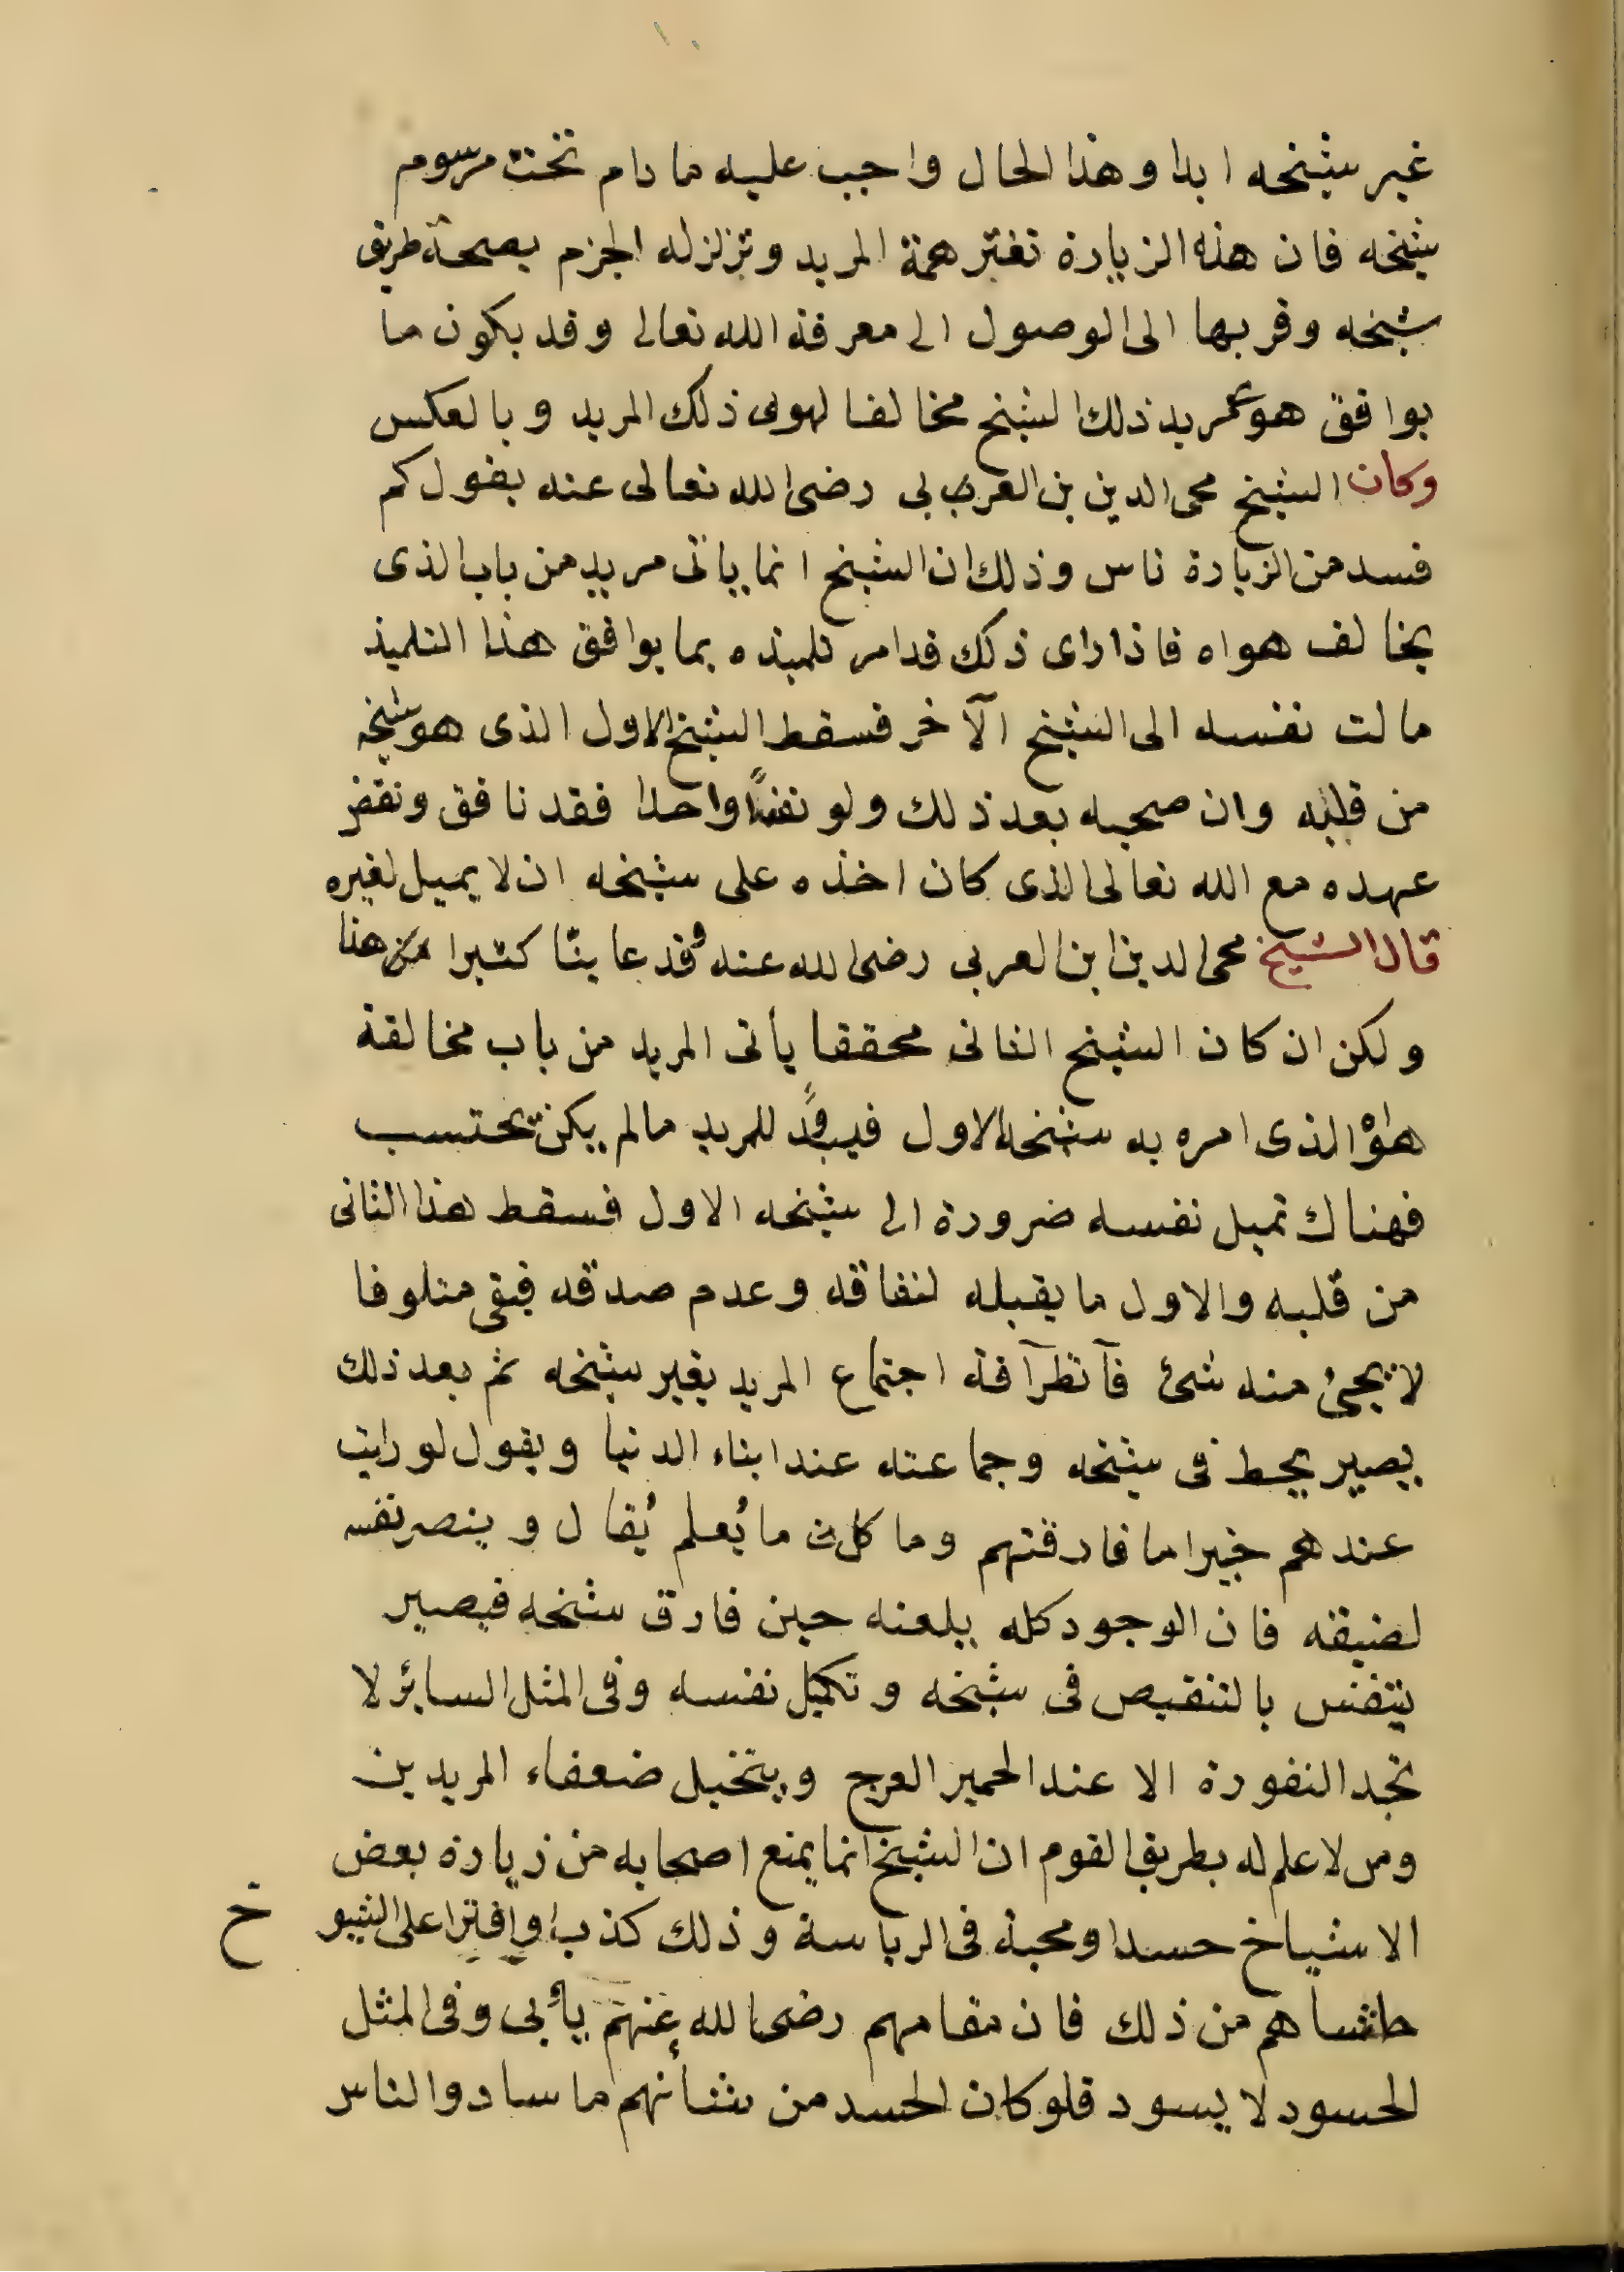 غير شيخه ابدا وهذا الحال واجب عليه ما دام تحت مرسوم
شيخه فان هذه الزيارة تفتر همة المريد وتزلزله الجزم بصحة طريق
شيخه وقربها الى الوصول الى معرفة الله تعالى وقد يكون ما
يوافق هوى مريد ذلك الشيخ مخالفا لهوى ذلك المريد وبالعكس
وكان الشيخ محى الدين بن العربى رضى الله تعالى عنه يقول كم
فسد من الزيارة ناس وذلك ان الشيخ انما ياتى مريد من باب الذى
يخالف هواه فاذا راى ذلك قد امر تلميذه بما يوافق هذا التلميذ
مالت نفسه الى الشيخ الآخر فسقط الشيخ الاول الذى هو شيخه
من قلبه وان صحبه بعد ذلك ولو نفسًا واحدا فقد نافق ونقض
عهده مع الله تعالى الذى كان اخذه على شيخه ان لا يميل لغيره
قال الشيخ محى الدين ابن العربى رضى الله عنه وقد عاينّا كثيرا من هذا
ولكن ان كان الشيخ الثانى محققا يأتى المريد من باب مخالفة
هواه الذى امره به شيخه الاول فيبدو للمريد مالم يكن يحتسب
فهناك تميل نفسه ضرورة الى شيخه الاول فسقط هذا الثانى
من قلبه والاول ما يقبله لنفاقه وعدم صدقه فبقى متلوفا
لا يجىء منه شىء فآنظر آفة اجتماع المريد بغير شيخه ثم بعد ذلك
يصير يحط فى شيخه وجماعته عند ابناء الدنيا ويقول لو رايت
عندهم خيرا ما فارقتهم وما كل ما يُعلم يُقال وينصر نفسه
لضيقه فان الوجود كله يلعنه حين فارق شيخه فيصير
يتنفس بالتنقيص فى شيخه وتكميل نفسه وفى المثل السائر لا
تجد النفورة الا عند الحمير العرج ويتخيل ضعفاء المريدين
ومن لا علم له بطريق القوم ان الشيخ انما يمنع اصحابه من زيارة بعض
الاشياخ حسدا ومحبة فى الرياسة وذلك كذب وافترا على الشيو
خ
حاشاهم من ذلك فان مقامهم رضى الله عنهم يأبى وفى المثل
الحسود لا يسود فلو كان الحسد من شأنهم ما سادوا الناس